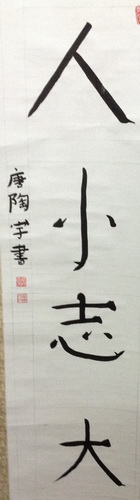 人小志大
唐陶学書